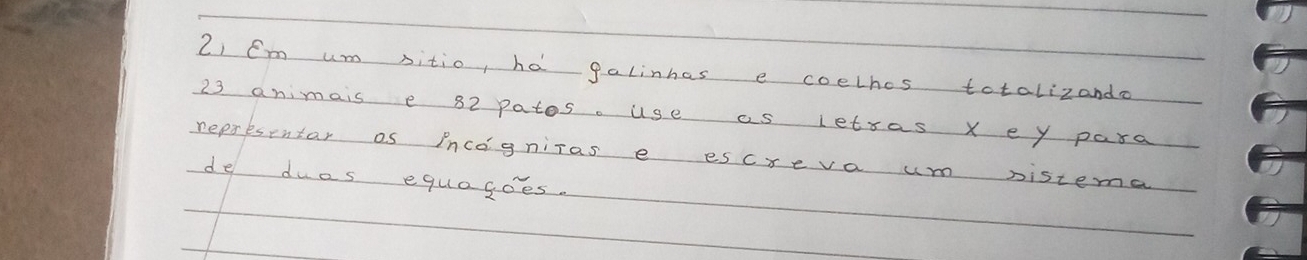 2) Em um sitio, há galinhas e coelhos totalizando
23 animais e 82 patos. Use as letras x e y para
representar as incógnitas e escreva um sistema
de duas equações.